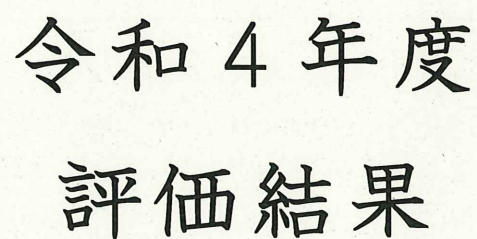 令和４年度
評価結果